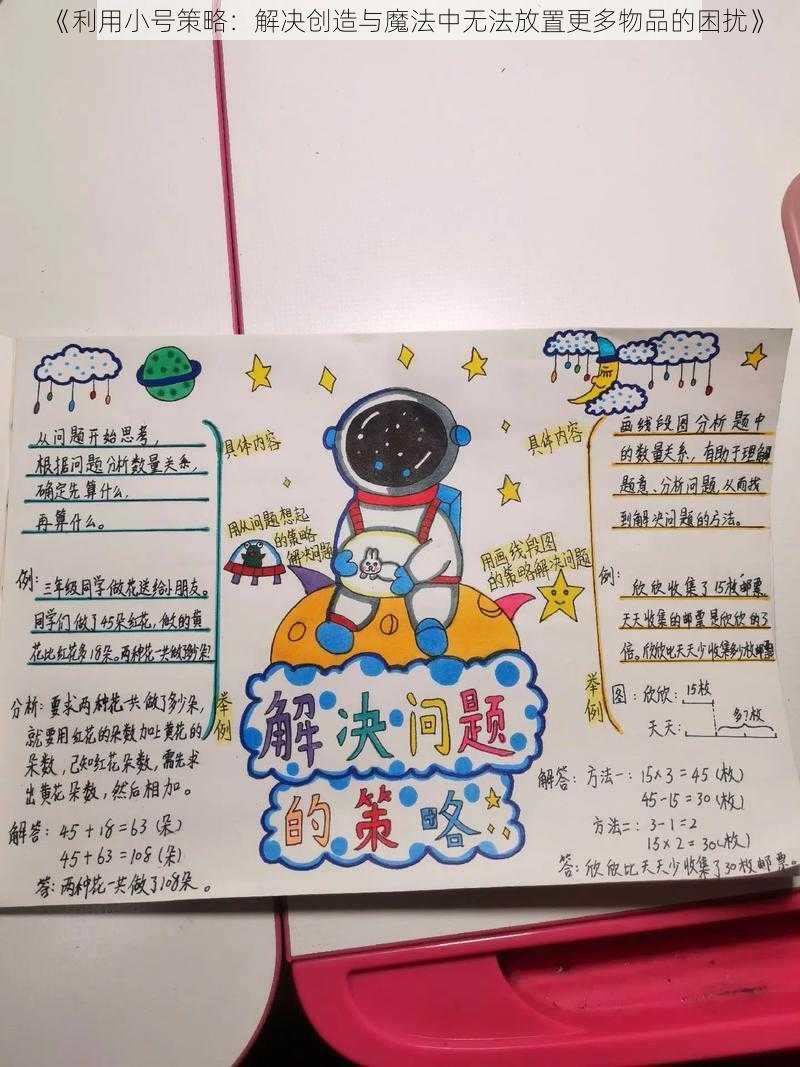 《利用小号策略：解决创造与魔法中无法放置更多物品的困扰》
从问题开始思考，
根据问题分析数量关系，
确定先算什么，
再算什么。
具体内容
用从问题想起
的策略
解决问题
例：三年级同学做花送给小朋友。
同学们做了45朵红花，做的黄
花比红花多18朵。两种花一共做了多少朵？
分析：要求两种花一共做了多少朵，
就要用红花的朵数加上黄花的
朵数，已知红花朵数，需先求
出黄花朵数，然后相加。
举例
解答：45+18=63（朵）
45+63=108（朵）
答：两种花一共做了108朵。
解决问题
的策略
具体内容
画线段图分析题中
的数量关系，有助于理解
题意、分析问题，从而找
到解决问题的方法。
用画线段图
的策略解决问题
例：欣欣收集了15枚邮票，
天天收集的邮票是欣欣的3
倍。欣欣比天天少收集多少枚邮票
举例
图：欣欣：15枚
天天：多？枚
解答：方法一：15×3=45（枚）
45-15=30（枚）
方法二：3-1=2
15×2=30（枚）
答：欣欣比天天少收集了30枚邮票。